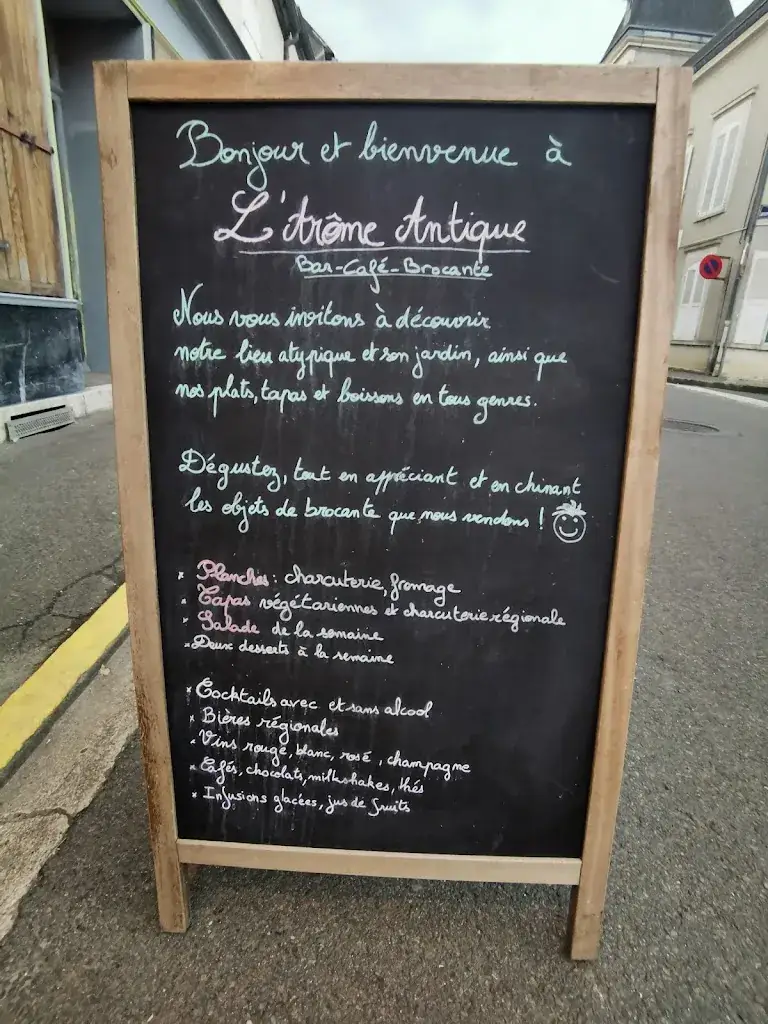 Bonjour et bienvenue à
L'Arôme Antique
Bar-Café-Brocante
Nous vous invitons à découvrir
notre lieu atypique et son jardin, ainsi que
nos plats, tapas et boissons en tous genres.
Dégustez, tout en appréciant et en chinant
les objets de brocante que nous vendons !
x Planches : charcuterie, fromage
x Tapas végétariennes et charcuterie régionale
x Salade de la semaine
x Deux desserts à la semaine
x Cocktails avec et sans alcool
x Bières régionales
x Vins rouge, blanc, rosé, champagne
x Cafés, chocolats, milkshakes, thés
x Infusions glacées, jus de fruits